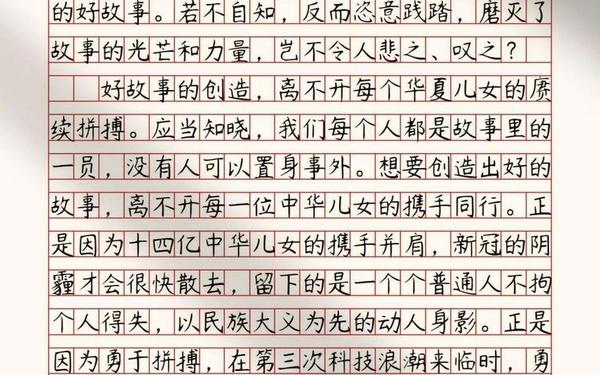 的好故事。若不自知，反而恣意践踏，磨灭了
故事的光芒和力量，岂不令人悲之、叹之？
好故事的创造，离不开每个华夏儿女的赓
续拼搏。应当知晓，我们每个人都是故事里的
一员，没有人可以置身事外。想要创造出好的
故事，离不开每一位中华儿女的携手同行。正
是因为十四亿中华儿女的携手并肩，新冠的阴
霾才会很快散去，留下的是一个个普通人不拘
个人得失，以民族大义为先的动人身影。正是
因为勇于拼搏，在第三次科技浪潮来临时，勇